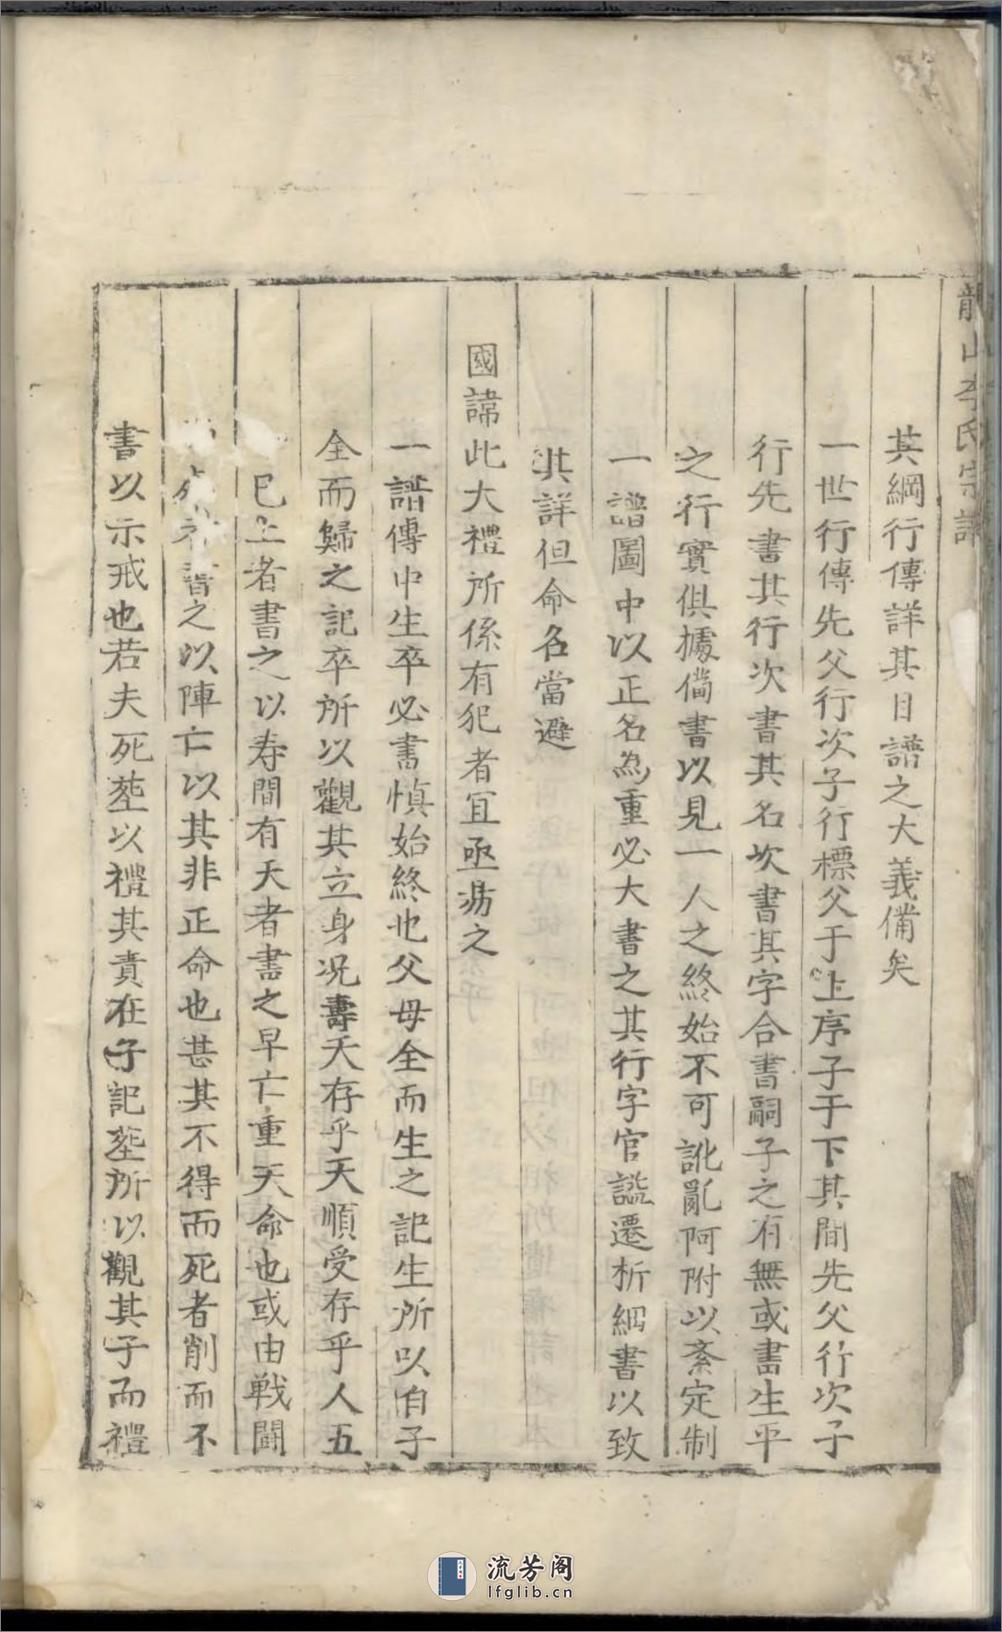 龍山李氏宗譜
其綱行傳詳其目譜之大義備矣
一世行傳先父行次子行標父于上序子于下其間先父行次子
行先書其行次書其名次書其字合書嗣子之有無或書生平
之行實俱據備書以見一人之終始不可訛亂阿附以紊定制
一譜圖中以正名為重必大書之其行字官諡遷析細書以致
其詳但命名當避
國諱此大禮所係有犯者冝亟易之
一譜傳中生卒必書慎始終也父母全而生之記生所以伯子
全而歸之記卒所以觀其立身况壽夭存乎天順受存乎人五
巳上者書之以寿間有夭者書之早亡重天命也或由戰鬪
書之以陣亡以其非正命也甚其不得而死者削而不
書以示戒也若夫死塟以禮其責在子記塟所以觀其子而禮
流芳阁
lfglib.cn